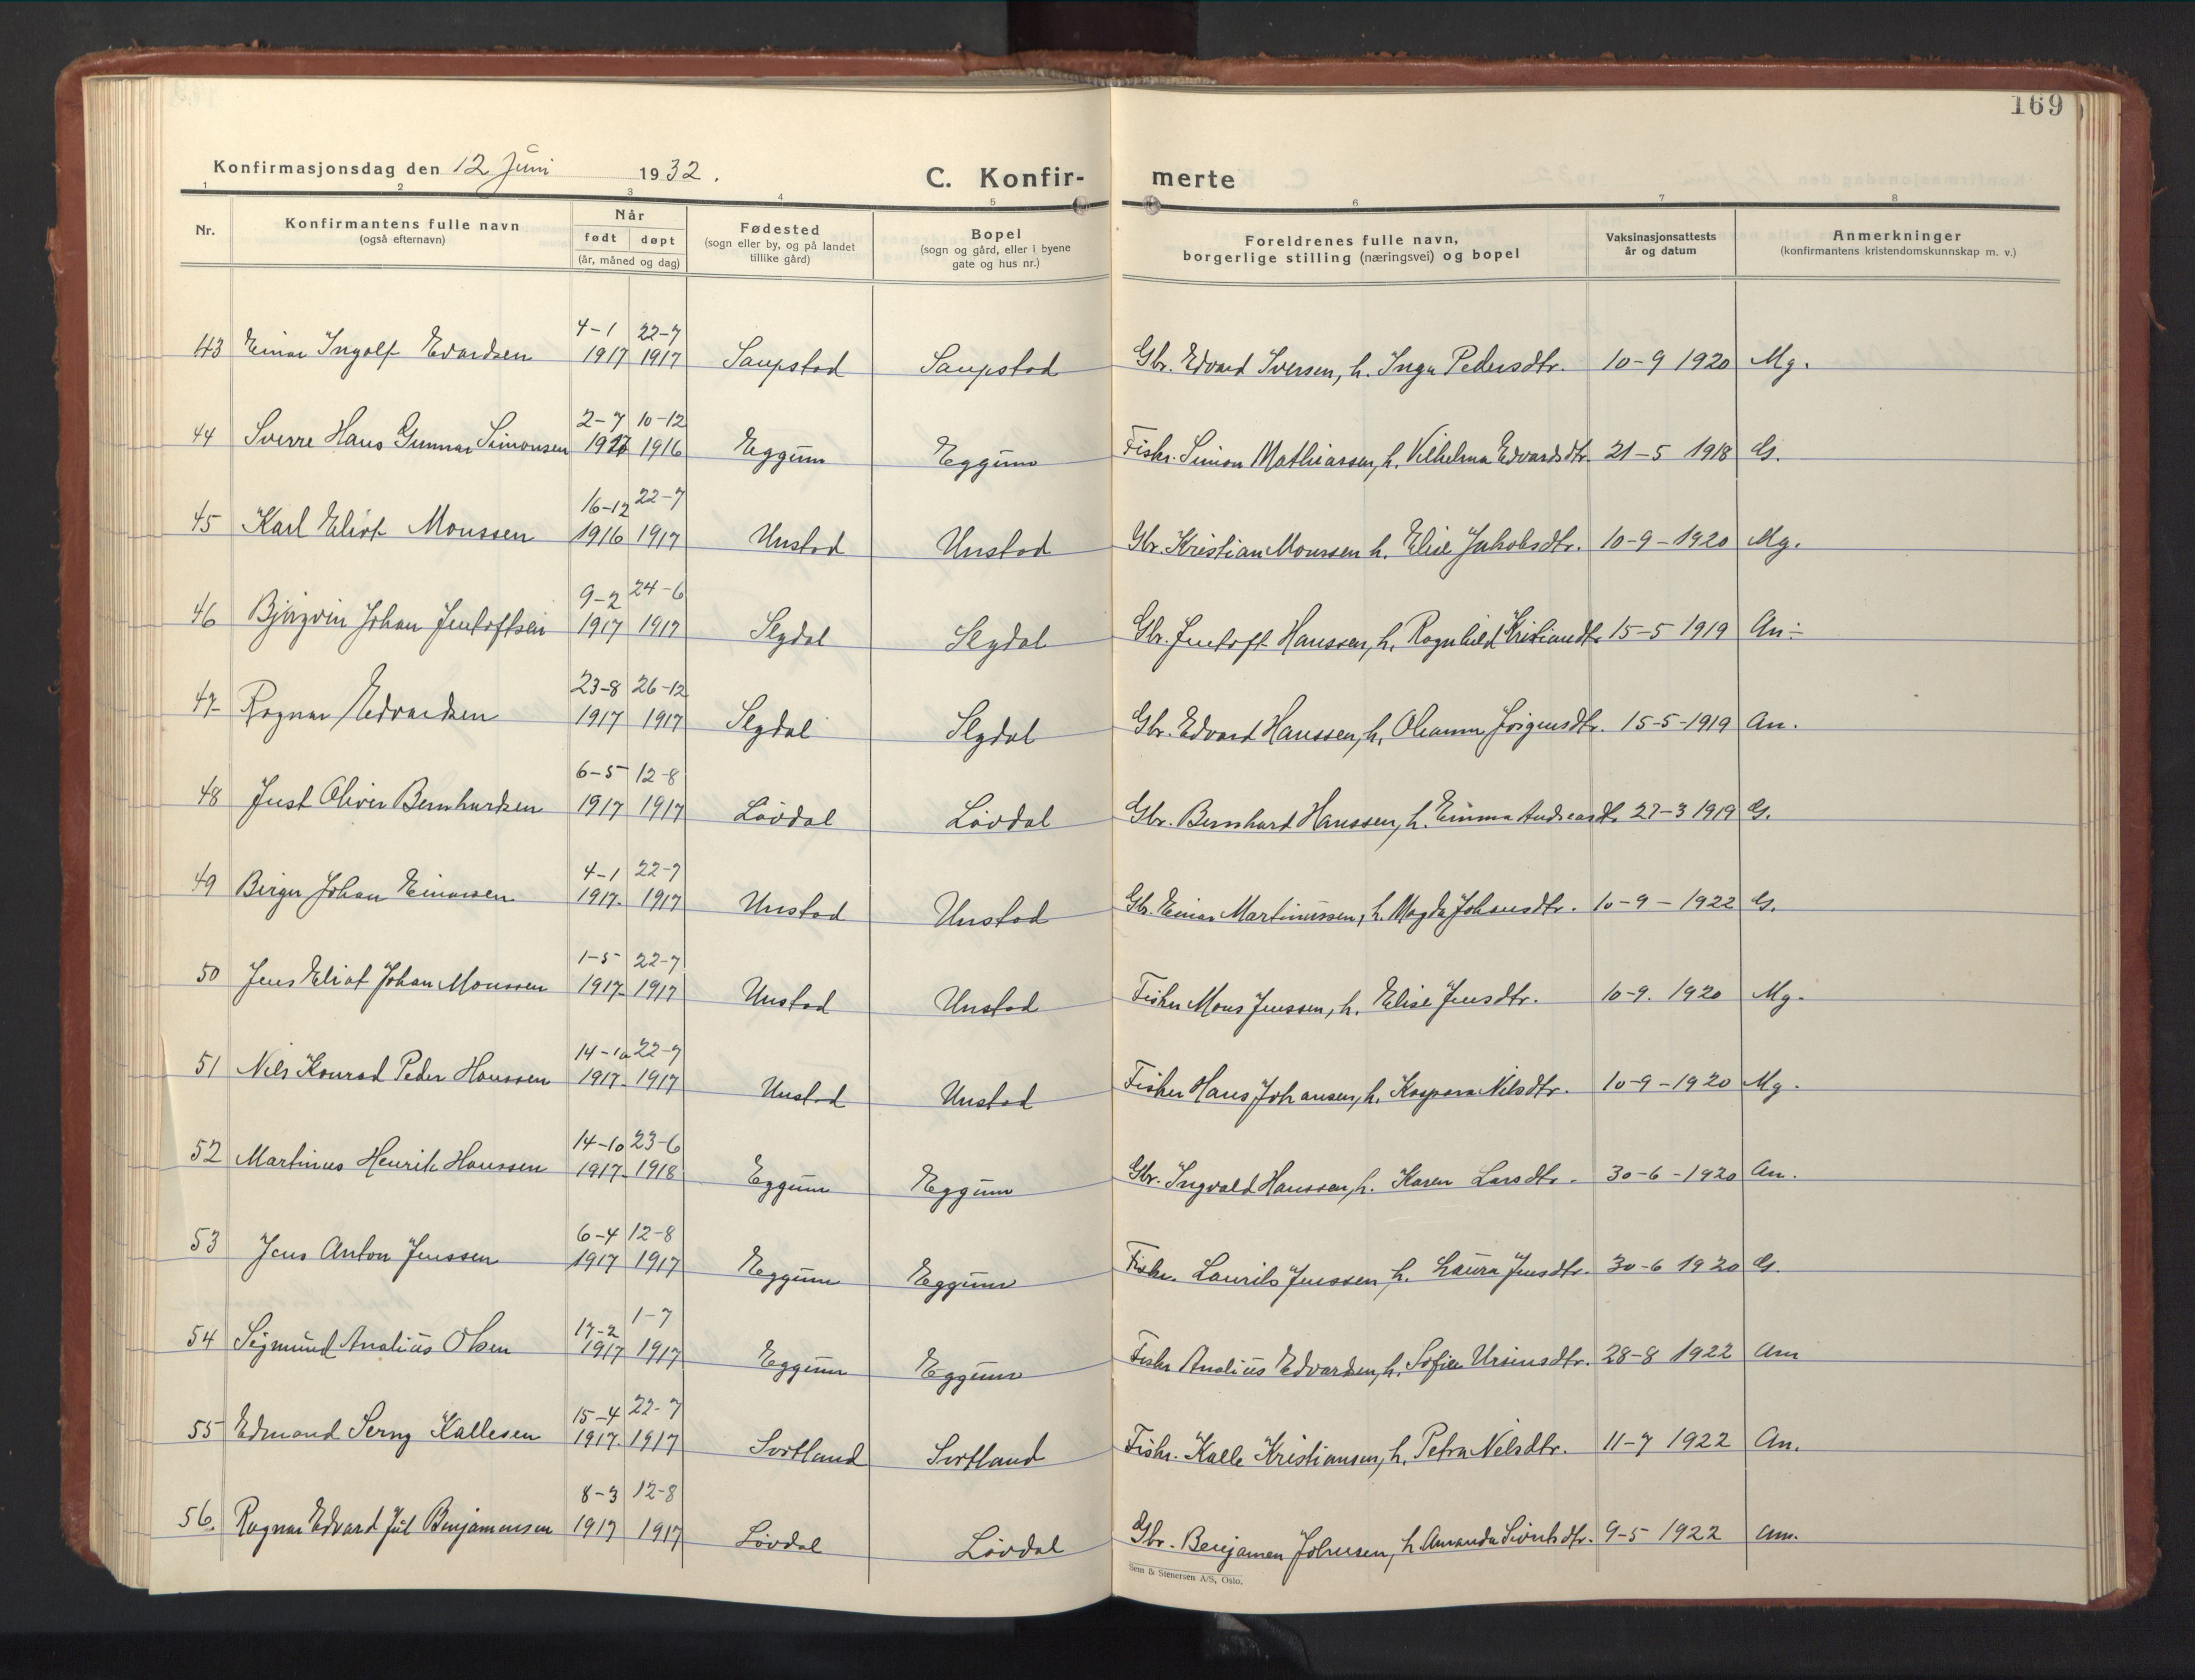 169
Konfirmasjonsdag den 12 Juni 1932.
C. Konfir- merte
1 2 3 4 5 6 7 8
Nr. Konfirmantens fulle navn (også efternavn) Når født døpt (år, måned og dag) Fødested (sogn eller by, og på landet tillike gård) Bopel (sogn og gård, eller i byene gate og hus nr.) Foreldrenes fulle navn, borgerlige stilling (næringsvei) og bopel Vaksinasjonsattests år og datum Anmerkninger (konfirmantens kristendomskunnskap m. v.)
43 Einar Ingolf Edvardsen 4-1 1917 22-7 1917 Saupstad Saupstad Gbr. Edvard Iversen, h. Inga Pedersdtr. 10-9 1920 Mg.
44 Sverre Hans Gunnar Simonsen 2-7 10-12 1916 Eggum Eggum Fisker. Simon Mathiassen, h. Vilhelma Edvardsdtr. 21-5 1918 G.
45 Karl Eliot Monssen 16-12 1916 22-7 1917 Unstad Unstad Gbr. Kristian Monssen h. Elise Jakobsdtr. 10-9-1920 Mg.
46 Johan Jentoftsen 9-2 1917 24-6 1917 Slydal Slydal Gbr. Jentoft Hanssen, h. Ragnhild Kristiandtr 15-5 1919 An.-
47 Ragnar Edvardsen 23-8 1917 26-12 1917 Slydal Slydal Gbr. Edvard Hanssen, h. Jörgensdtr. 15-5-1919 An.
48 Just Oliver Bernhardsen 6-5 1917 12-8 1917 Lövdal Lövdal Gbr. Bernhard Hanssen, h. Emma Andreasdtr. 27-3 1919 G.
49 Birger Johan Einarsen 4-1 1917. 22-7 1917 Unstad Unstad Gb. Einar Martinussen, h. Magda Johansdtr. 10-9-1922 G.
50 Jens Eliot Johan Monssen 1-5 1917- 22-7 1917 Unstad Unstad Fisker Mons Jenssen, h. Elise Jensdtr. 10-9. 1920 Mg.
51 Nils Konrad Peder Hanssen 14-10 1917- 22-7 1917 Unstad Unstad Fisker Hans Johansen, h. Kaspara Nilsdtr. 10-9-1920 Mg.
52 Martinus Henrik Hanssen 14-10 1917- 23-6 1918 Eggum Eggum Gbr. Ingvald Hanssen, h. Karen Larsdtr. 30-6-1920 An.
53 Jens Anton Jenssen 6-4 1917 12-8 1917 Eggum Eggum Fisker. Laurits Jenssen h. Laura Jensdtr. 30-6 1920 G.
54 Sigmund Analius Olsen 17-2 1917 1-7 1917 Eggum Eggum Fisker Analius Edvardsen, h. Sofie Ursinsdtr. 28-8 1922 Am
55 Edmand Serny Kallesen 15-4 1917. 22-7 1917 Sortland Sortland Fisker. Kalle Kristiansen, h. Petra Nilsdtr. 11-7 1922 An.
56. Ragnar Edvard Jul Benjamensen 8-3 1917 12-8 1917 Lövdal Lövdal Gbr. Benjamen Johnsen, h. Amanda Sivertsdtr. 9-5 1922 am.
Sem & Stenersen A/S, Oslo.